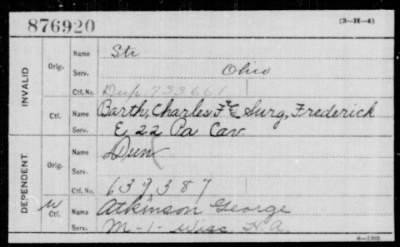 876920 (3-H-4)
INVALID
Orig. Name Str
Serv. Ohio
Ctf. No. Dup. 733661
Ctf. Name Barth, Charles F. Surg, Frederick
Serv. E, 22 Pa Cav.
DEPENDENT
Orig. Name
Serv.
Ctf. No. 637387
W Ctf. Name Atkinson George
Serv. M-1-Wisc H.A.